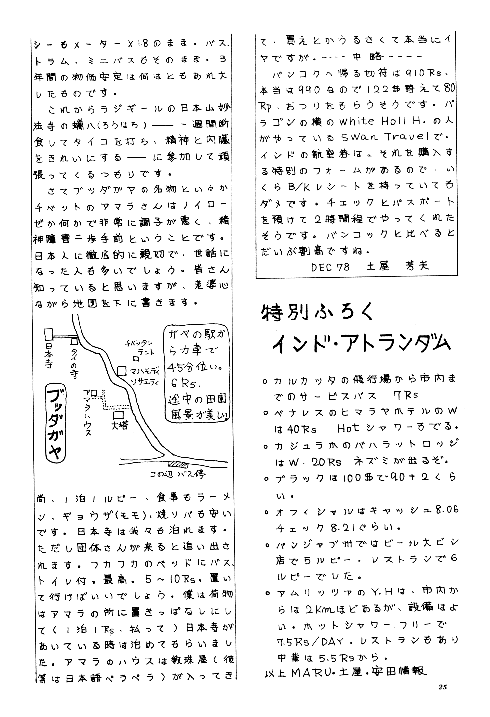 シーもメーター×1.8のまま。バス、
トラム、ミニバスもそのまま。3
年間の物価安定は何はともあれ大
したものです。
これからラジギールの日本山妙
法寺の臘八(ろうはち)――1週間断
食してタイコを打ち、精神と内臓
をきれいにする――に参加して頑
張ってくるつもりです。
さてブッダガヤの名物というか
チベットのアマラさんはノイロー
ゼか何かで非常に調子が悪く、精
神障害二歩手前ということです。
日本人に徹底的に親切で、世話に
なった人も多いでしょう。皆さん
知っていると思いますが、老婆心
ながら地図を下に書きます。
日本寺
タイの寺
チベッタン
テント
マハボディ
ソサエティ
アマラハウス
大塔
ブッダガヤ
この辺バス停
ガヤの駅か
ら力車で
45分位い。
6Rs.
途中の田園
風景が美い
尚、1泊1ルピー、食事もラーメ
ン、ギョウザ(モモ)、焼ソバも安い
です。日本寺は楽々も泊れます。
ただし団体さんが来ると追い出さ
れます。フカフカのベッドにバス、
トイレ付。最高。5〜10Rs.置い
て行けばいいでしょう。僕は荷物
はアマラの所に置きっぱなしにし
て(1泊1Rs.払って)日本寺が
あいている時は泊めてもらいまし
た。アマラのハウスは教珠屋(彼
僧は日本語ペラペラ)が入ってき
て、買えとかうるさくて本当にイ
ヤですが。----中略-----
バンコクへ帰る切符は910Rs.
本当は990なので122$替えて80
Rp.おつりをもらうそうです。パ
ラゴンの横のWhite Holi H.の人
がやっているSwan Travelで。
インドの航空券は、それを購入す
る特別のフォームがあるので、い
くらB/Kレシートを持っていても
ダメです。チェックとパスポート
を預けて2時間程でやってくれた
そうです。バンコックと比べると
だいぶ割高ですね。
DEC 78 土屋 芳美
特別ふろく
インド・アトランダム
○カルカッタの飛行場から市内ま
でのサービスバス 7Rs
○ベナレスのヒマラヤホテルのW
は40Rs Hotシャワーもでる。
○カジュラホのバハラットロッジ
はW.20Rs ネズミが出るぞ。
○ブラックは100$で90+2くら
い。
○オフィシャルはキャッシュ8.06
チェック8.21ぐらい。
○パンジャブ州ではビール大ビン
店で5ルピー、レストランで6
ルピーでした。
○アムリッツァのY.Hは、市内か
らは2kmほどあるが、設備はよ
い。ホットシャワー、フリーで
7.5Rs/DAY。レストランもあり
中華は5.5Rsから。
以上MARU・土屋・安田情報
25